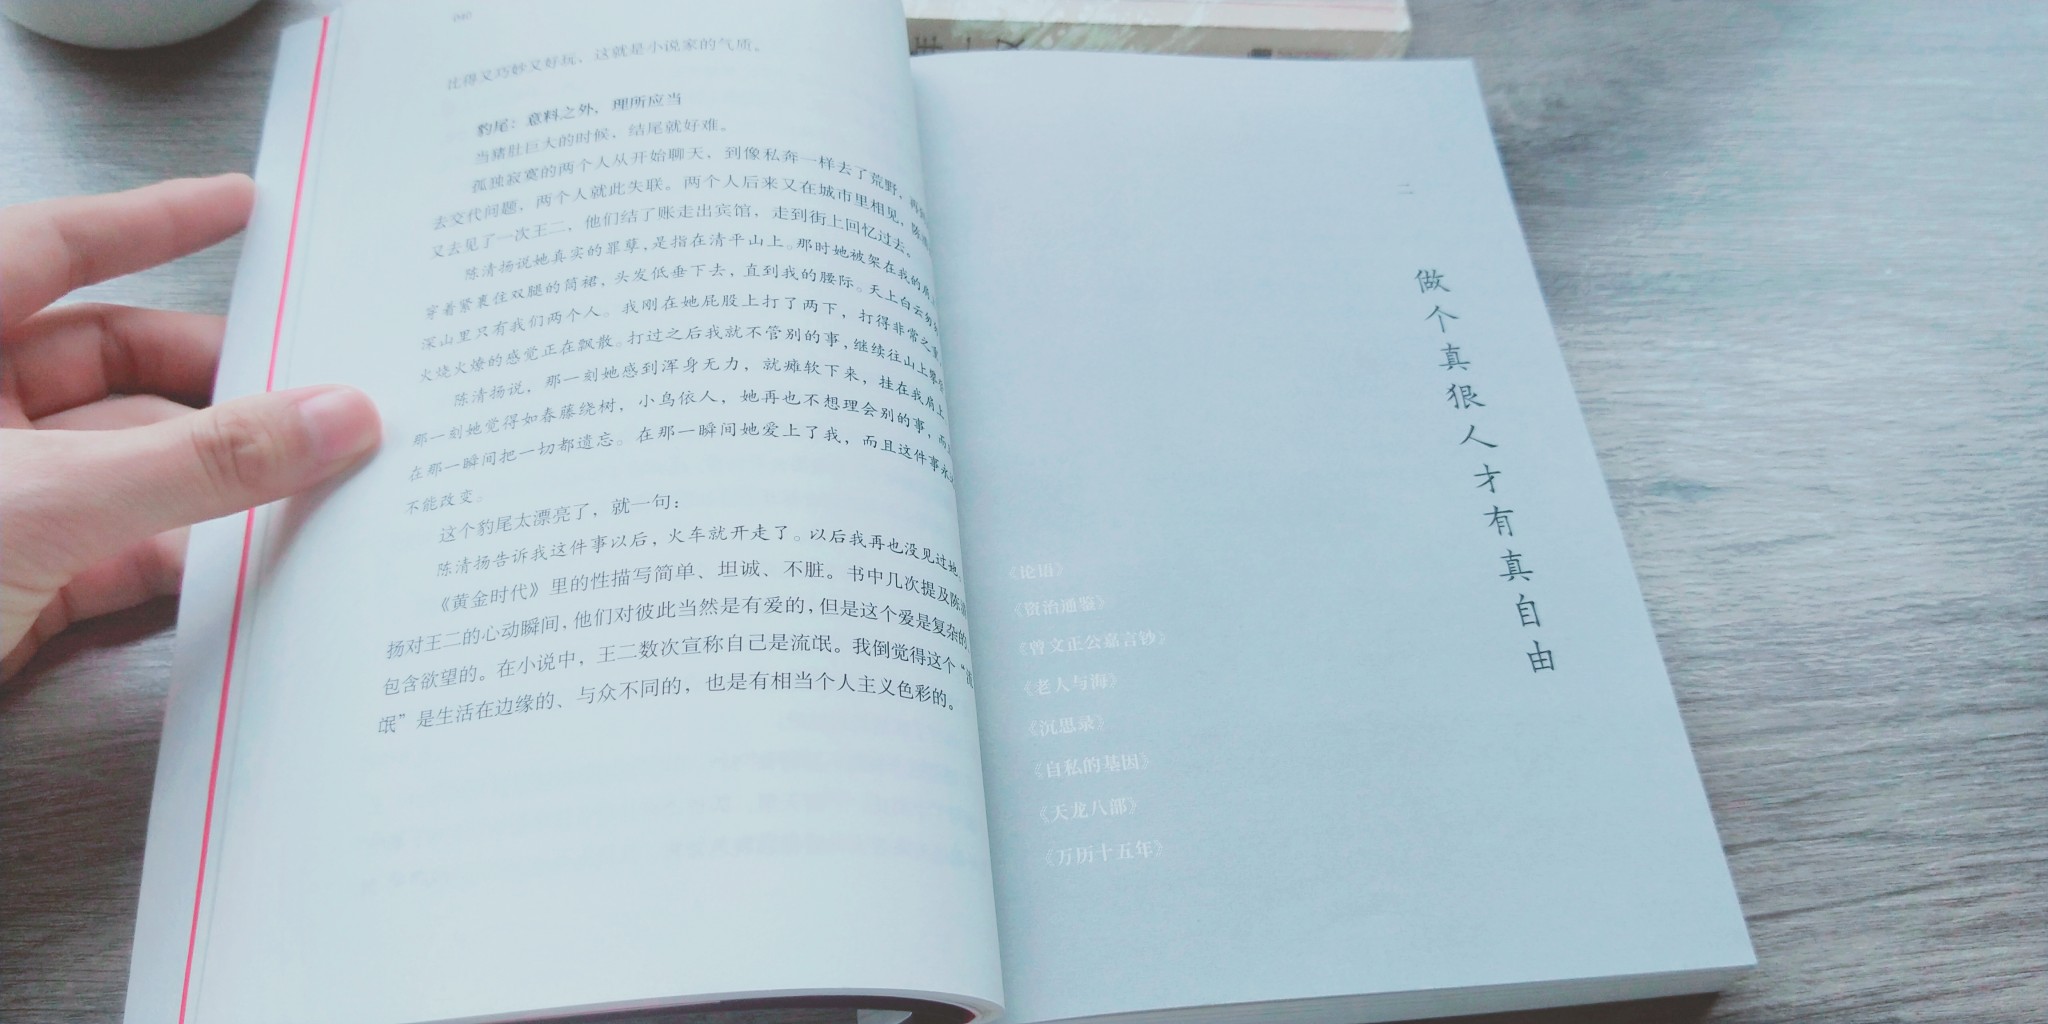 比得又巧妙又好玩、这就是小说家的气质。
豹尾：意料之外，理所应当
当猪肚巨大的时候，结尾就好难。
孤独寂寞的两个人从开始聊天，到像私奔一样去了荒野，再
去交代问题，两个人就此失联。两个人后来又在城市里相见，陈
又去见了一次王二，他们结了账走出宾馆，走到街上回忆过去。
陈清扬说她真实的罪孽，是指在清平山上。那时她被架在我的肩
穿着紧裹住双腿的筒裙，头发低垂下去，直到我的腰际。天上白云匆
深山里只有我们两个人。我刚在她屁股上打了两下，打得非常之重
火烧火燎的感觉正在飘散。打过之后我就不管别的事，继续往山上攀
陈清扬说，那一刻她感到浑身无力，就瘫软下来，挂在我肩上
那一刻她觉得如春藤绕树，小鸟依人，她再也不想理会别的事，而
在那一瞬间把一切都遗忘。在那一瞬间她爱上了我，而且这件事永
不能改变。
这个豹尾太漂亮了，就一句：
陈清扬告诉我这件事以后，火车就开走了。以后我再也没见过她。
《黄金时代》里的性描写简单、坦诚、不脏。书中几次提及陈
扬对王二的心动瞬间，他们对彼此当然是有爱的，但是这个爱是复杂的、
包含欲望的。在小说中，王二数次宣称自己是流氓。我倒觉得这个“流
氓”是生活在边缘的、与众不同的，也是有相当个人主义色彩的。
二
做个真狠人才有真自由
《论语》
《资治通鉴》
《曾文正公嘉言钞》
《老人与海》
《沉思录》
《自私的基因》
《天龙八部》
《万历十五年》